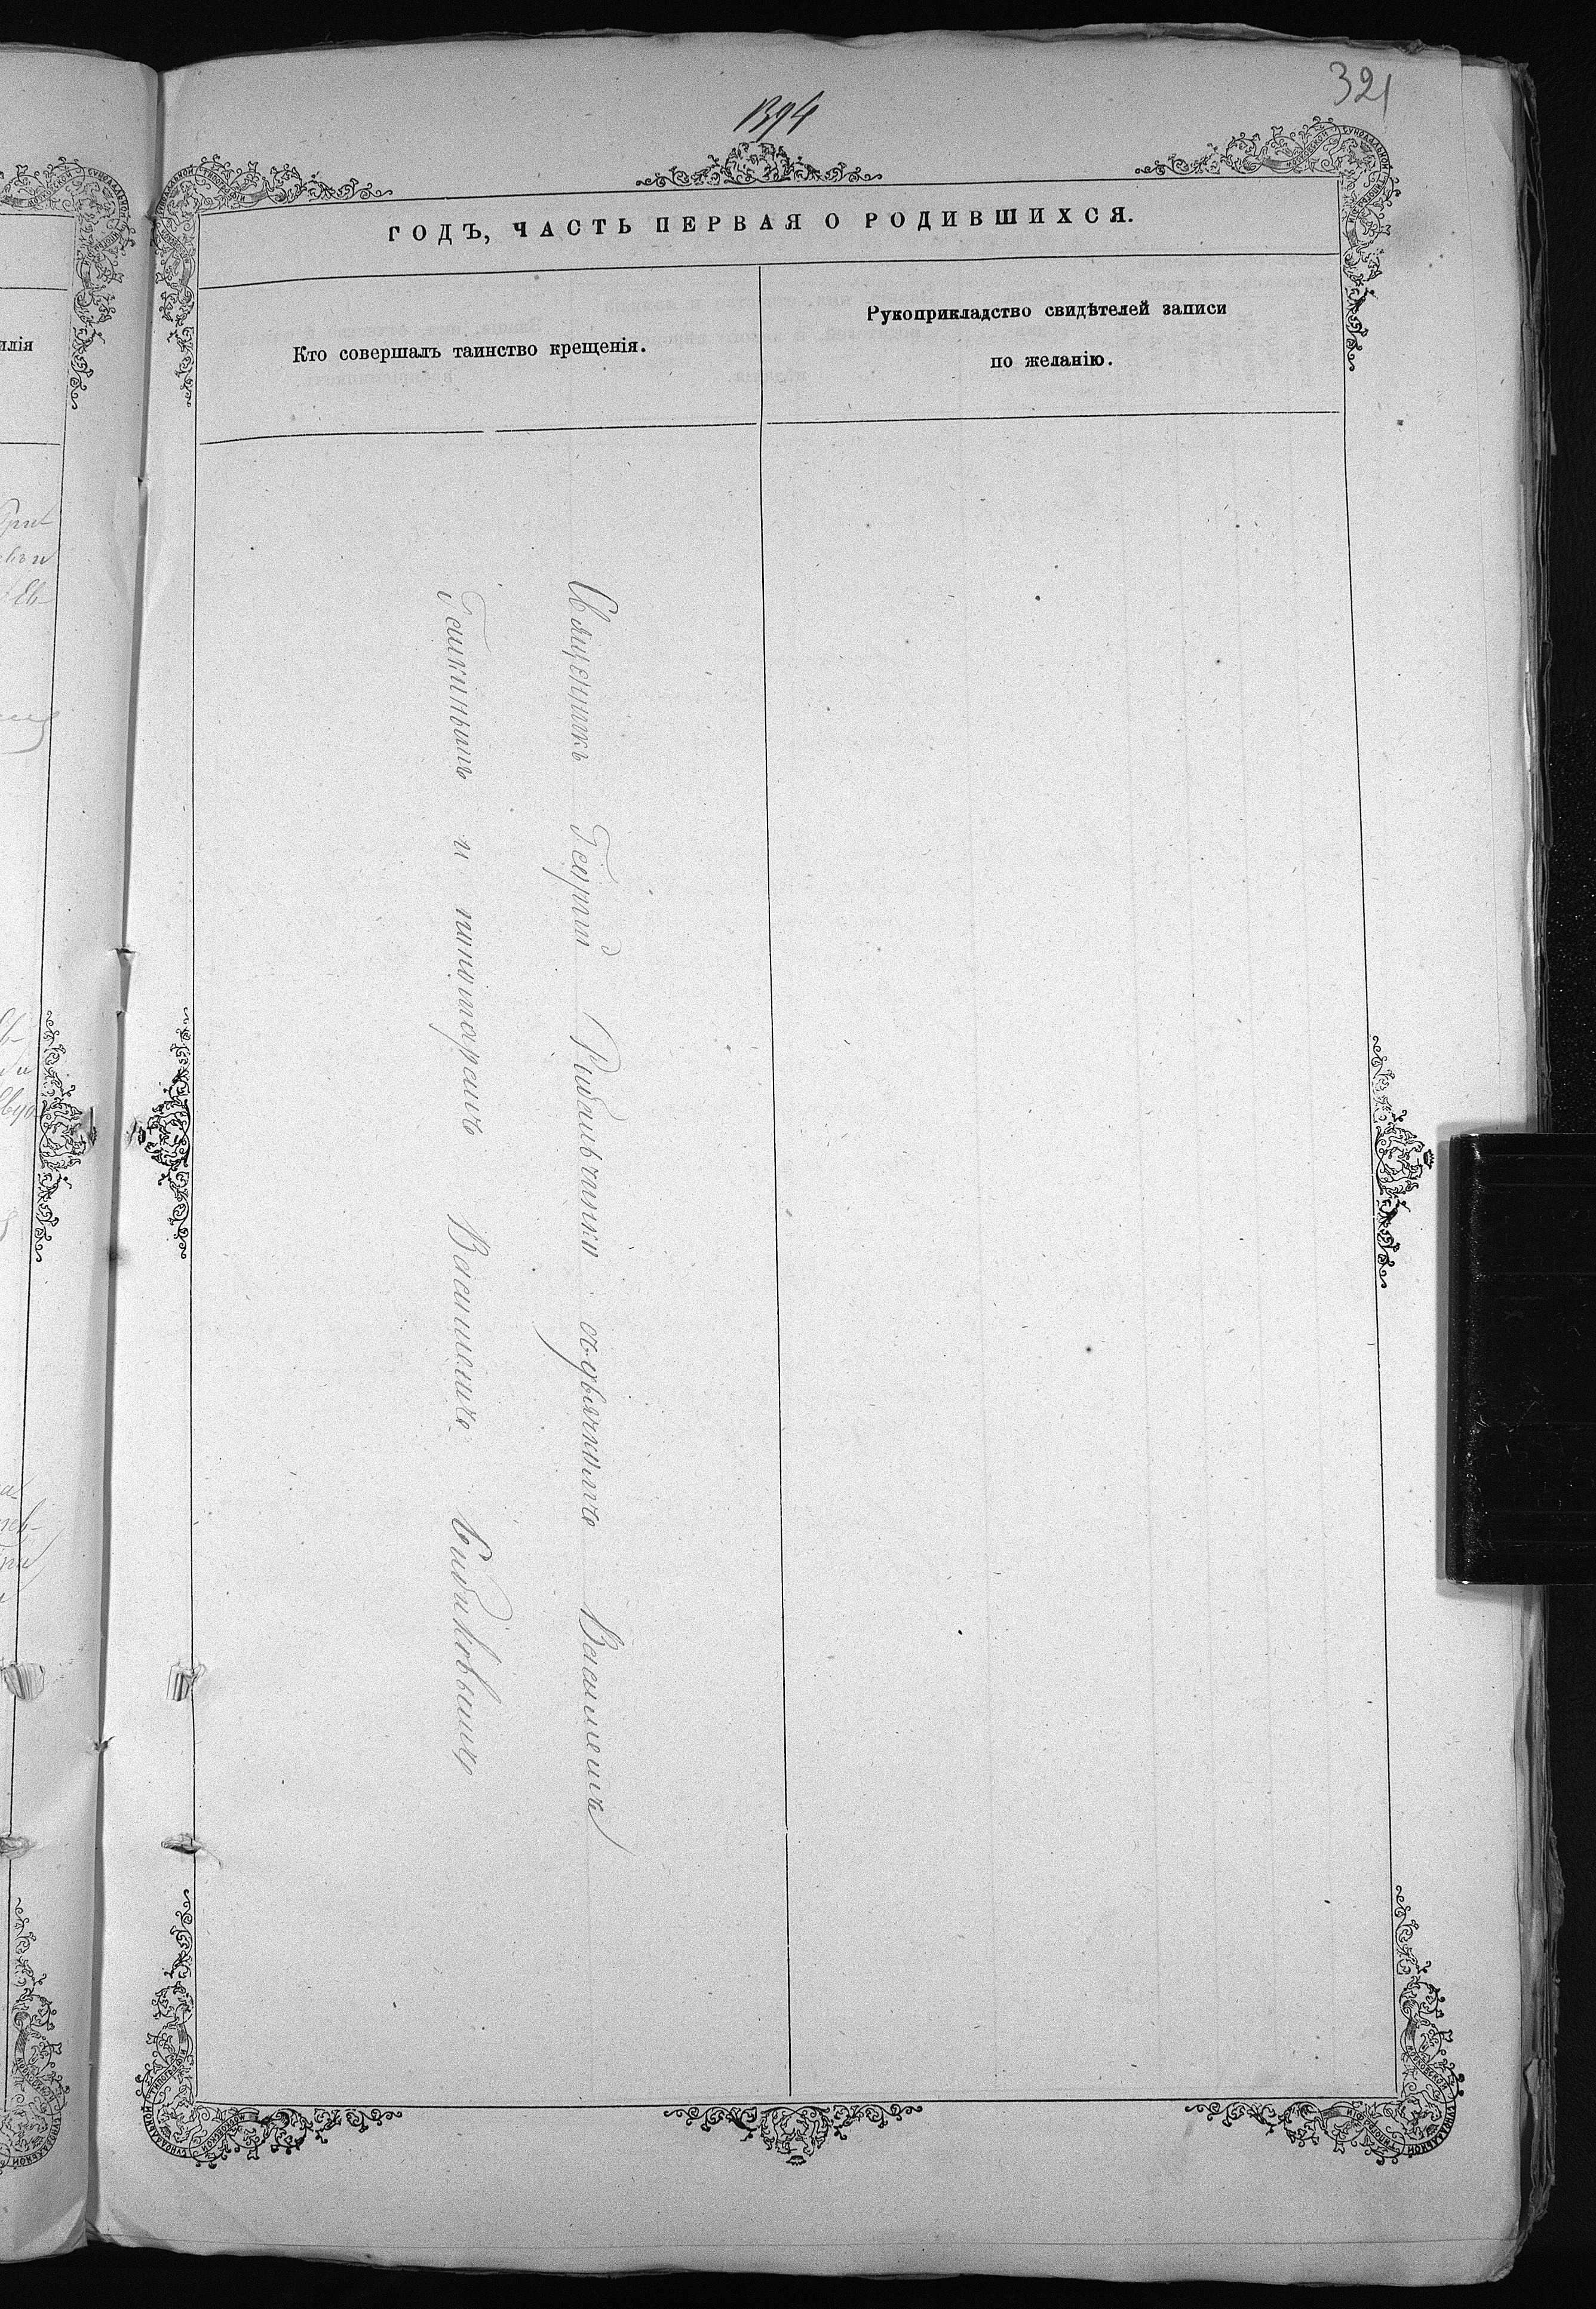 321
1394
ГОДЪ, ЧАСТЬ ПЕРВАЯ О РОДИВШИХСЯ.
Кто совершалъ таинство крещенія.
Рукоприкладство свидѣтелей записи
по желанію.
Священникъ Георгій Рибальченко съ дьячкомъ Василемъ
и понотаремъ Василемъ
илія